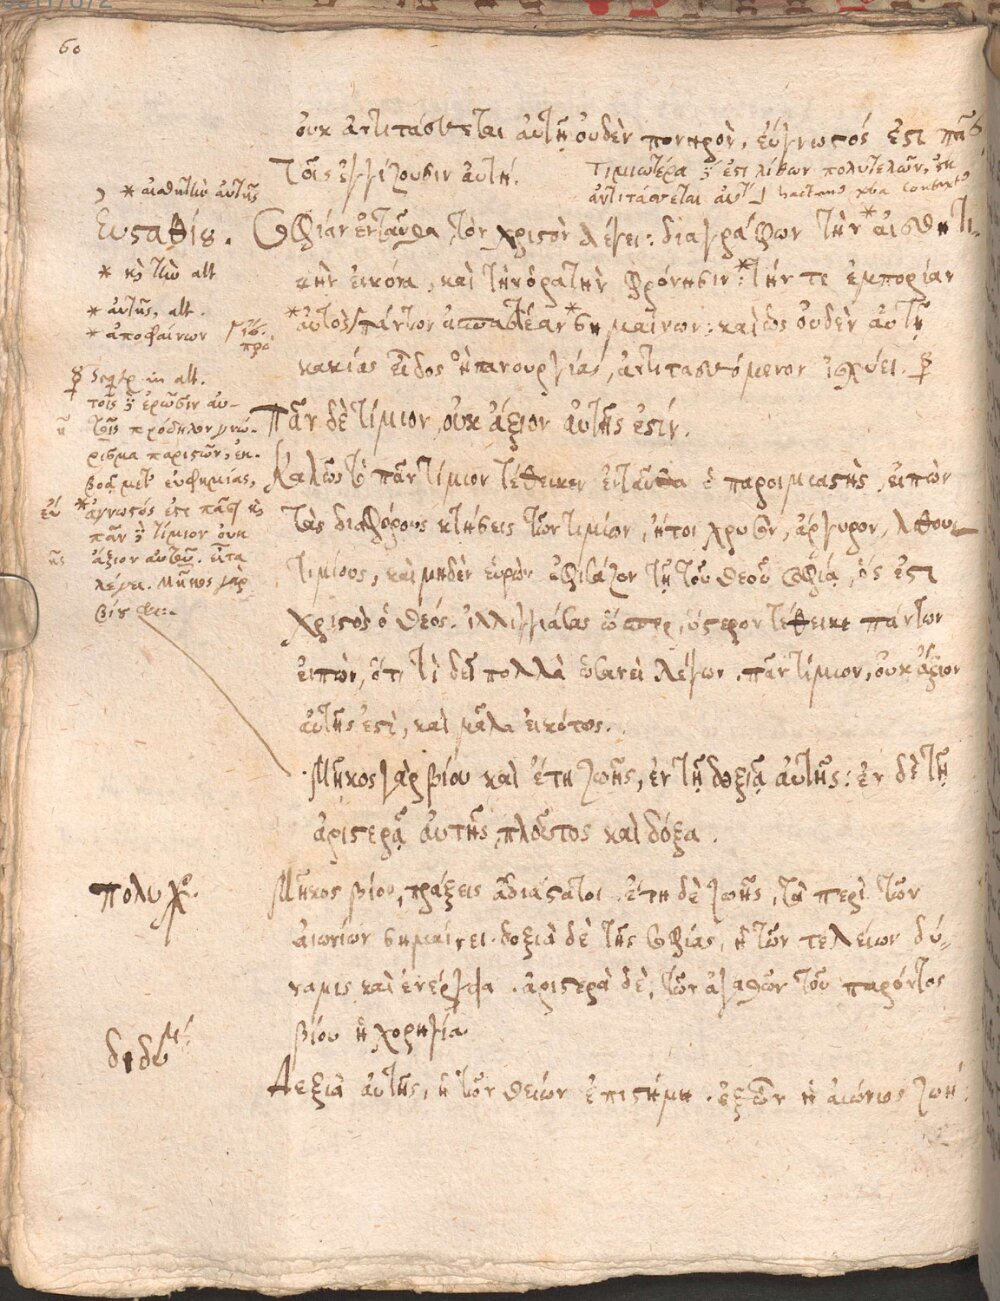 60
οὐκ ἀντιτάσσεται αὐτῇ οὐδὲν πονηρὸν, εὔγνωστός ἐστι πᾶσι
τοῖς ἐγγίζουσιν αὐτῇ.
τιμιωτέρα δέ ἐστι λίθων πολυτελῶν, οὐκ
ἀντιτάσσεται αὐτῇ
* αἰσθητὴν αὐτῆς
Ευσταθίου.
Σοφίαν ἐνταῦθα τὸν χριστὸν λέγει: διαγράφων τὴν * αἰσθητι-
* καὶ τὴν alt
κὴν εἰκόνα, καὶ τὴν ὁρατὴν φρόνησιν: * τήν τε ἐμπορίαν
* αὐτῆς, alt.
* ἀποφαίνων
* αὐτὸς πάντων * σημαίνων: καὶ ὡς οὐδὲν αὐτῇ
κακίας εἶδος ἢ πανουργίας, ἀντιτασσόμενον ἰσχύει.
in alt.
τοῖς δὲ ἐρῶσιν αὐ-
τῆς πρόδηλον γνώ-
ρισμα παριστῶν, ἐκ-
βοᾷ μετ' εὐφημίας,
εὔ * γνωστός ἐστι πᾶσι καὶ
πᾶν δὲ τίμιον οὐκ
ἄξιον αὐτῆς. εἶτα
λέγει. Μῆκος γὰρ
βίου &c.
Πᾶν δὲ τίμιον, οὐκ ἄξιον αὐτῆς ἐστίν.
Καλῶς τὸ πᾶν τίμιον τέθεικεν ἐνταῦθα ὁ παροιμιαστὴς, εἰπὼν
τὰς διαφόρους κτήσεις τῶν τιμίων, ἤτοι χρυσὸν, ἄργυρον, λίθους
τιμίους, καὶ μηδὲν εὑρὼν ἐφιβάζον τῇ τοῦ θεοῦ σοφίᾳ, ὅς ἐστι
χριστὸς ὁ θεός. ὥσπερ, ὕστερον τέθεικε πάντων
εἰπὼν, ὅτι τί δεῖ πολλὰ λέγων. πᾶν τίμιον, οὐκ ἄξιον
αὐτῆς ἐστὶ, καὶ μάλα εἰκότως.
Μῆκος γὰρ βίου καὶ ἔτη ζωῆς, ἐν τῇ δεξιᾷ αὐτῆς: ἐν δὲ τῇ
ἀριστερᾷ αὐτῆς, πλοῦτος καὶ δόξα.
πολυχρ.
Μῆκος βίου, πράξεις ἀδιάστατοι. ἔτη δὲ ζωῆς, τὰ περὶ τῶν
αἰωνίων σημαίνει. δεξιὰ δὲ τῆς σοφίας, ἡ τῶν τελείων δύ-
ναμις καὶ ἐνέργεια. ἀριστερὰ δὲ, τῶν ἀγαθῶν τοῦ παρόντος
βίου ἡ χορηγία
διδύμ.
Δεξιὰ αὐτῆς, ἡ τῶν θείων ἐπιστήμη. ἐξ ὧν ἡ αἰώνιος ζωή.